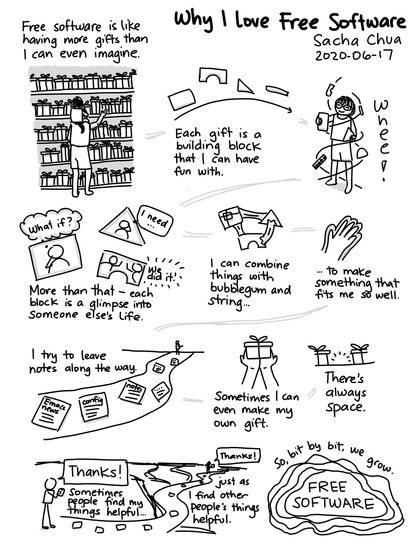 Why I Love Free Software
Sacha Chua
2020-06-17
Free software is like
having more gifts than
I can even imagine.
Each gift is a
building block
that I can have
fun with.
Whee!
What if?
I need
...
We
did it!
More than that - each
block is a glimpse into
someone else's life.
I can combine
things with
bubblegum and
string...
... to make
something that
fits me so well.
I try to leave
notes along the way.
Emacs
news
config
note
Sometimes I can
even make my
own gift.
There's
always
space.
Thanks!
Sometimes
people find my
things helpful...
Thanks!
just as
I find other
people's things
helpful.
So, bit by bit, we grow.
FREE
SOFTWARE